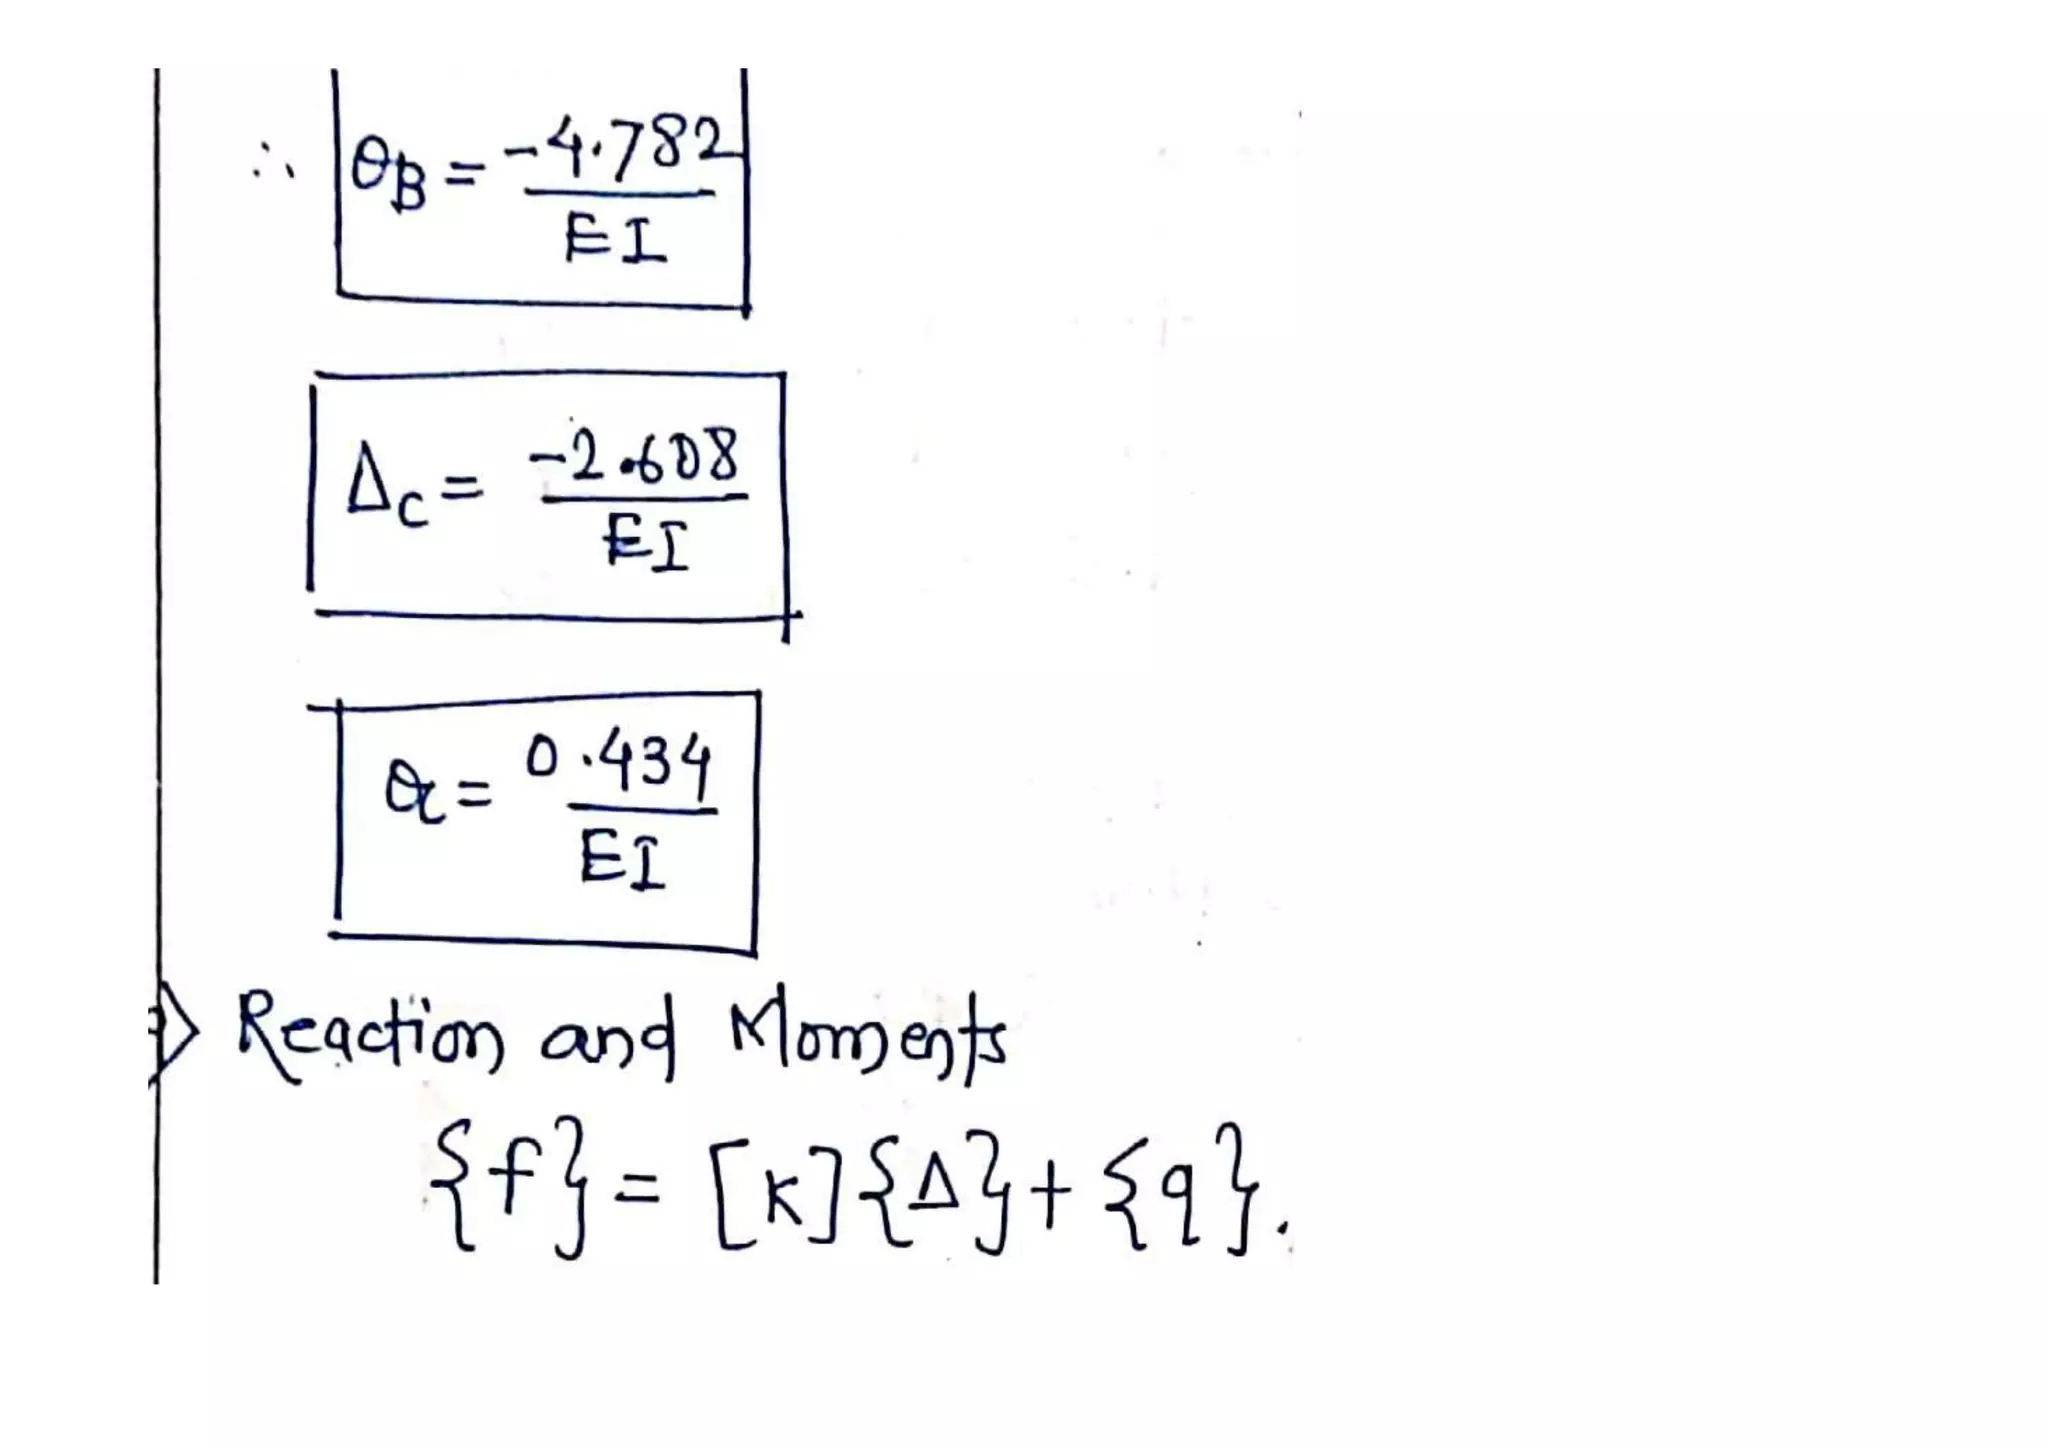 ∴ θB = -4.782
EI
ΔC = -2.608
EI
θC = 0.434
EI
Reaction and Moments
{f} = [K]{Δ} + {q}.